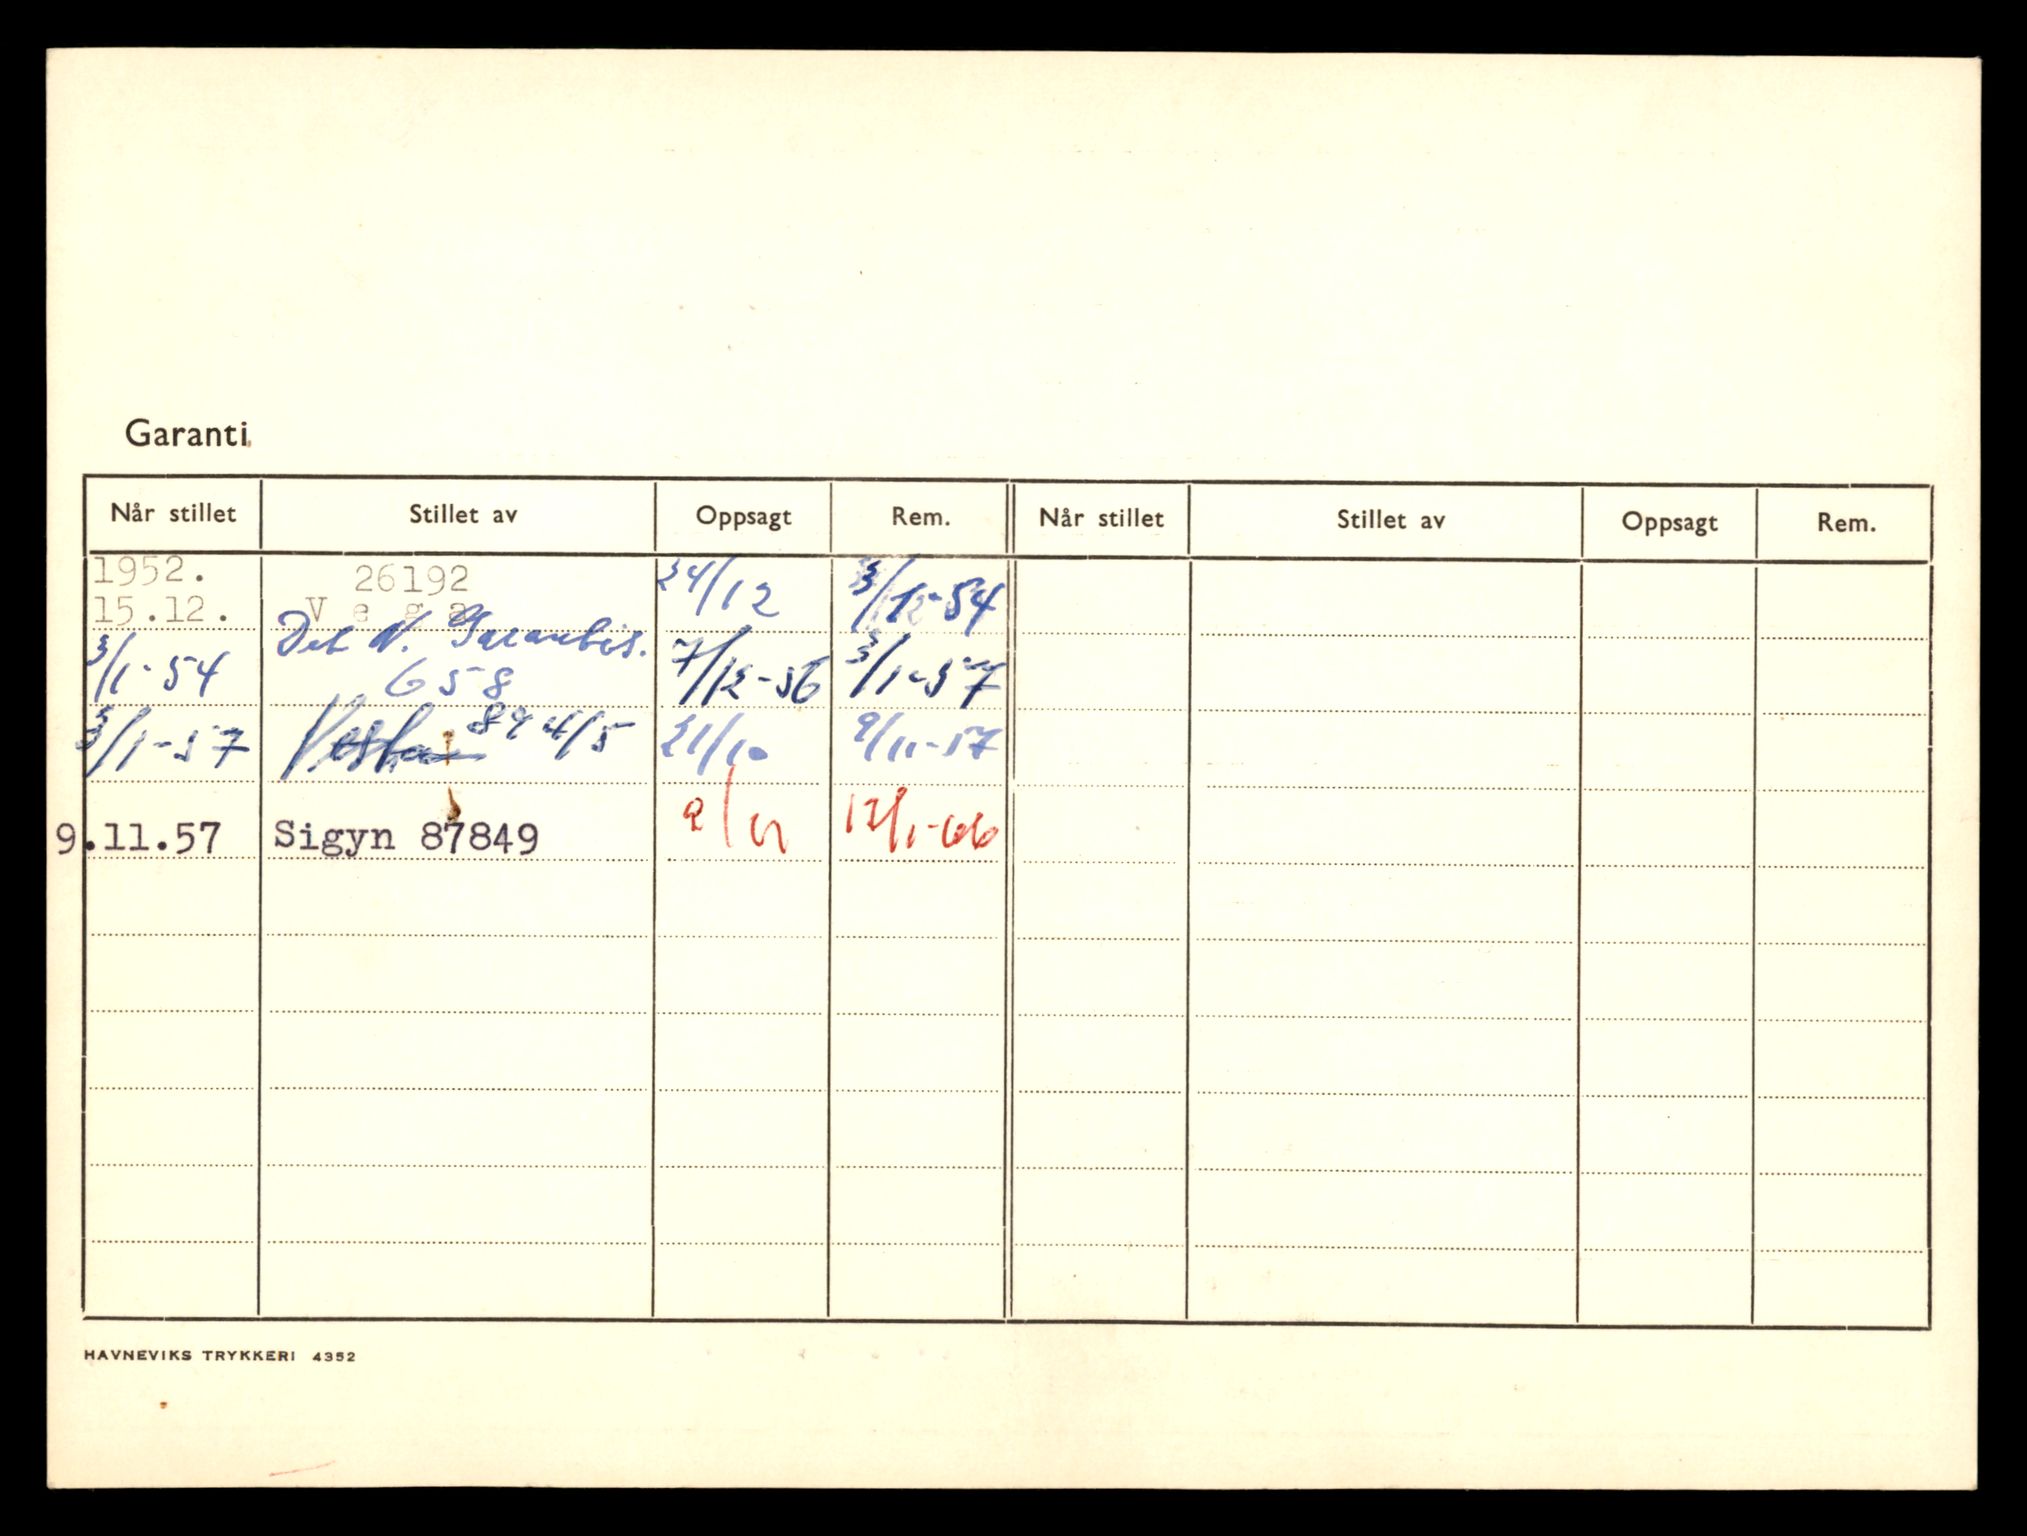 Garanti
Når stillet Stillet av Oppsagt Rem. Når stillet Stillet av Oppsagt Rem.
1952. 26192 24/12 3/12-54
15.12. Vega
Det N. Garantis.
3/1-54 658 7/12-56 3/1-57
3/1-57 Vesta 894/5 21/10 9/11-57
9.11.57 Sigyn 87849 2/ 12/1-66
HAVNEVIKS TRYKKERI 4352